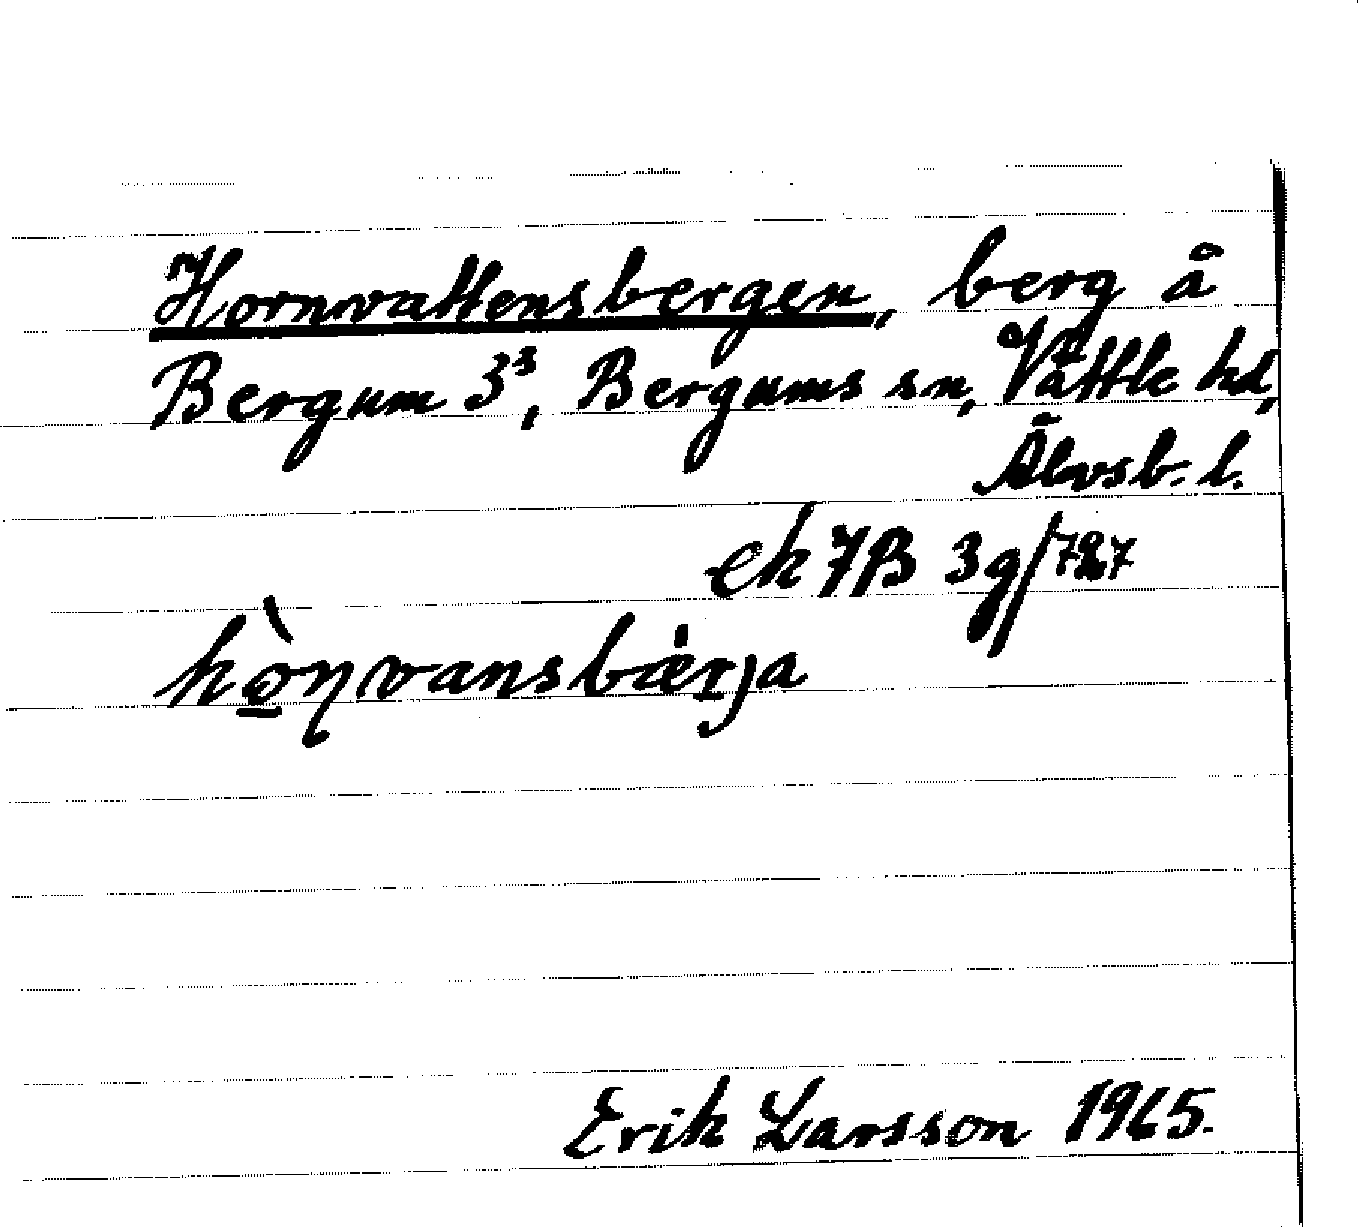 Hornvattensbergen, berg å
Bergum 3³, Bergums sn, Vättle hd,
Älvsb. l.
ek 7B 3g/7827
hò̱ŋvansbærja
Erik Larsson 1965.